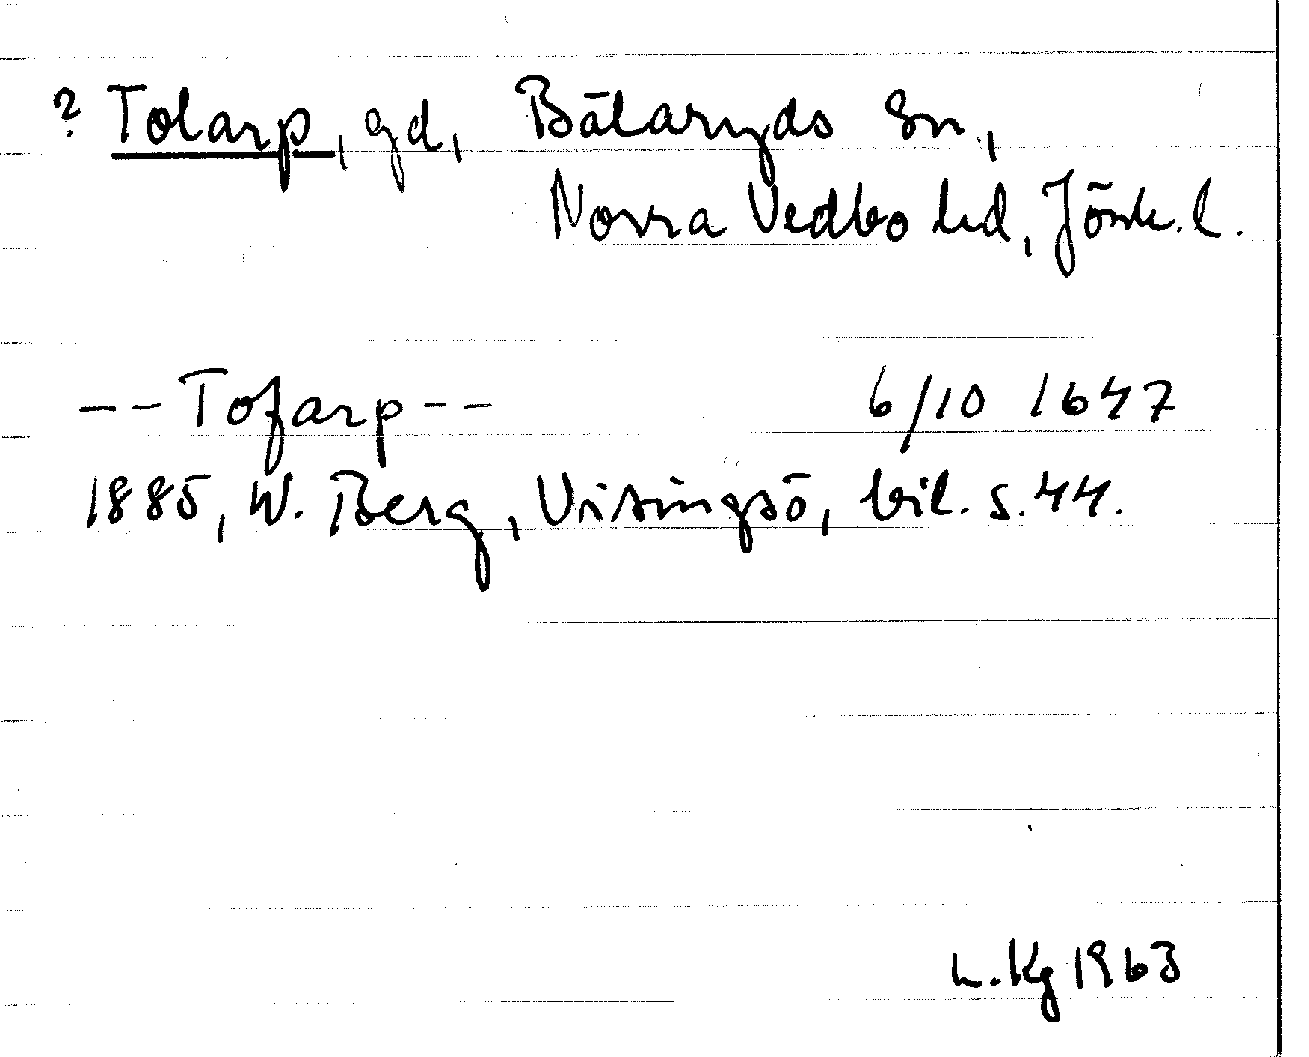 ? Tolarp, gd, Bälaryds sn,
Norra Vedbo hd, Jönk. l.
--Tofarp-- 6/10 1647
1885, W. Berg, Visingsö, bil. s. 44.
L. Kg 1963